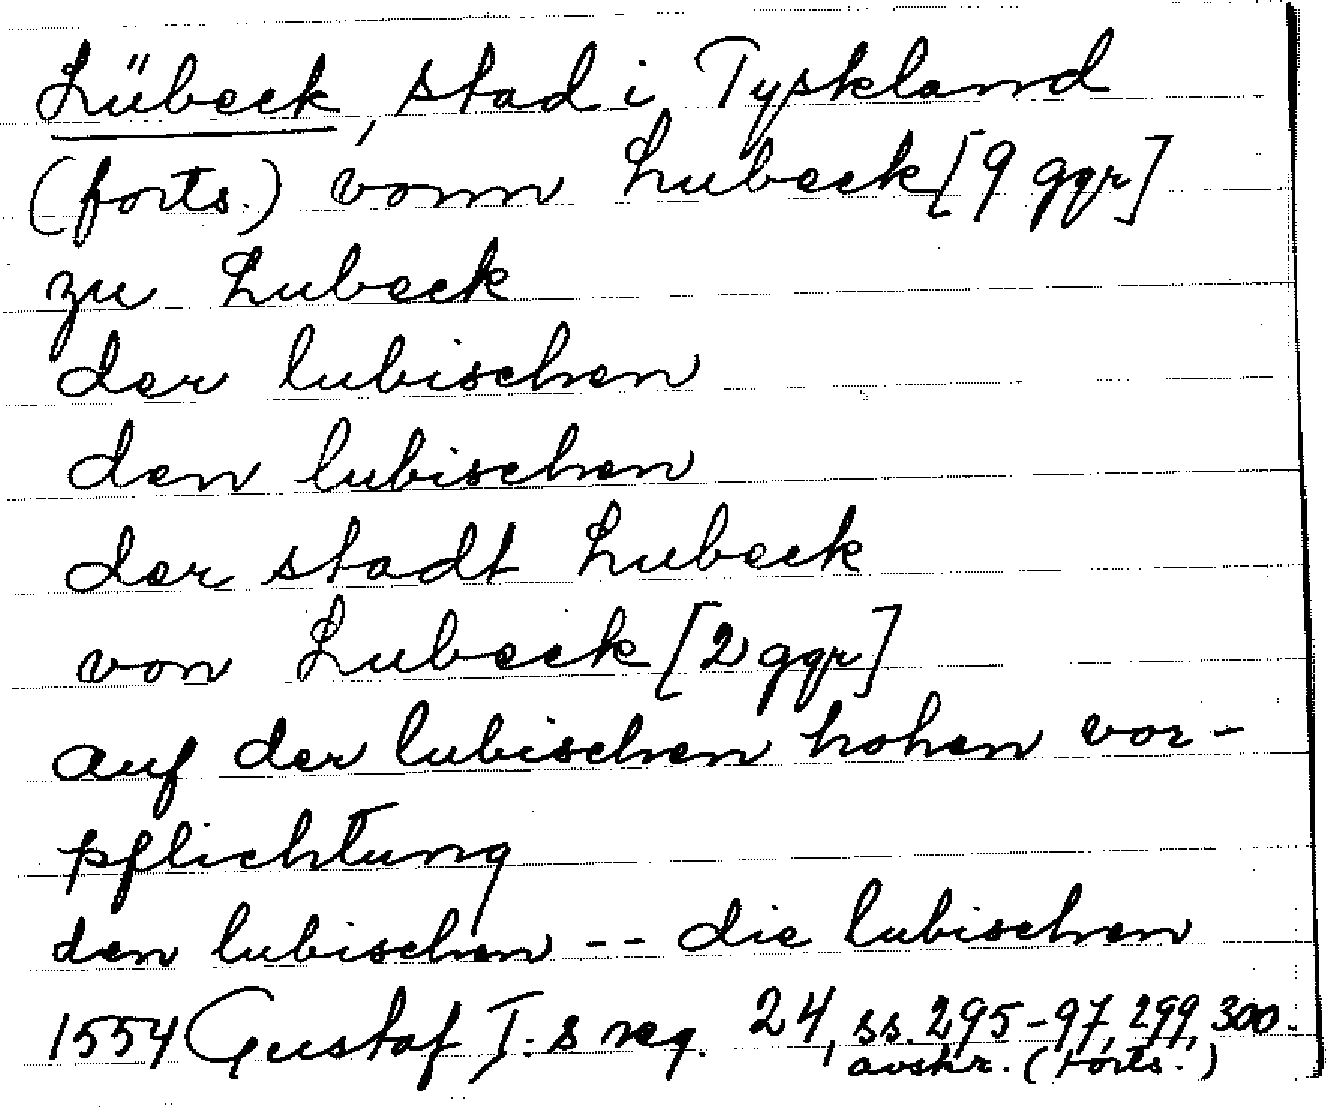 Lübeck, stad i Tyskland
(forts.) vonn Lubeck [9 ggr]
zu Lubeck
der lubischen
den lubischen
der stadt Lubeck
von Lubeck [2 ggr]
auf der lubischen hohen vor-
pflichtung
den lubischen -- die lubischen
1554 Gustaf I:s reg. 24, ss. 295-97, 299, 300.
avskr. (forts.)